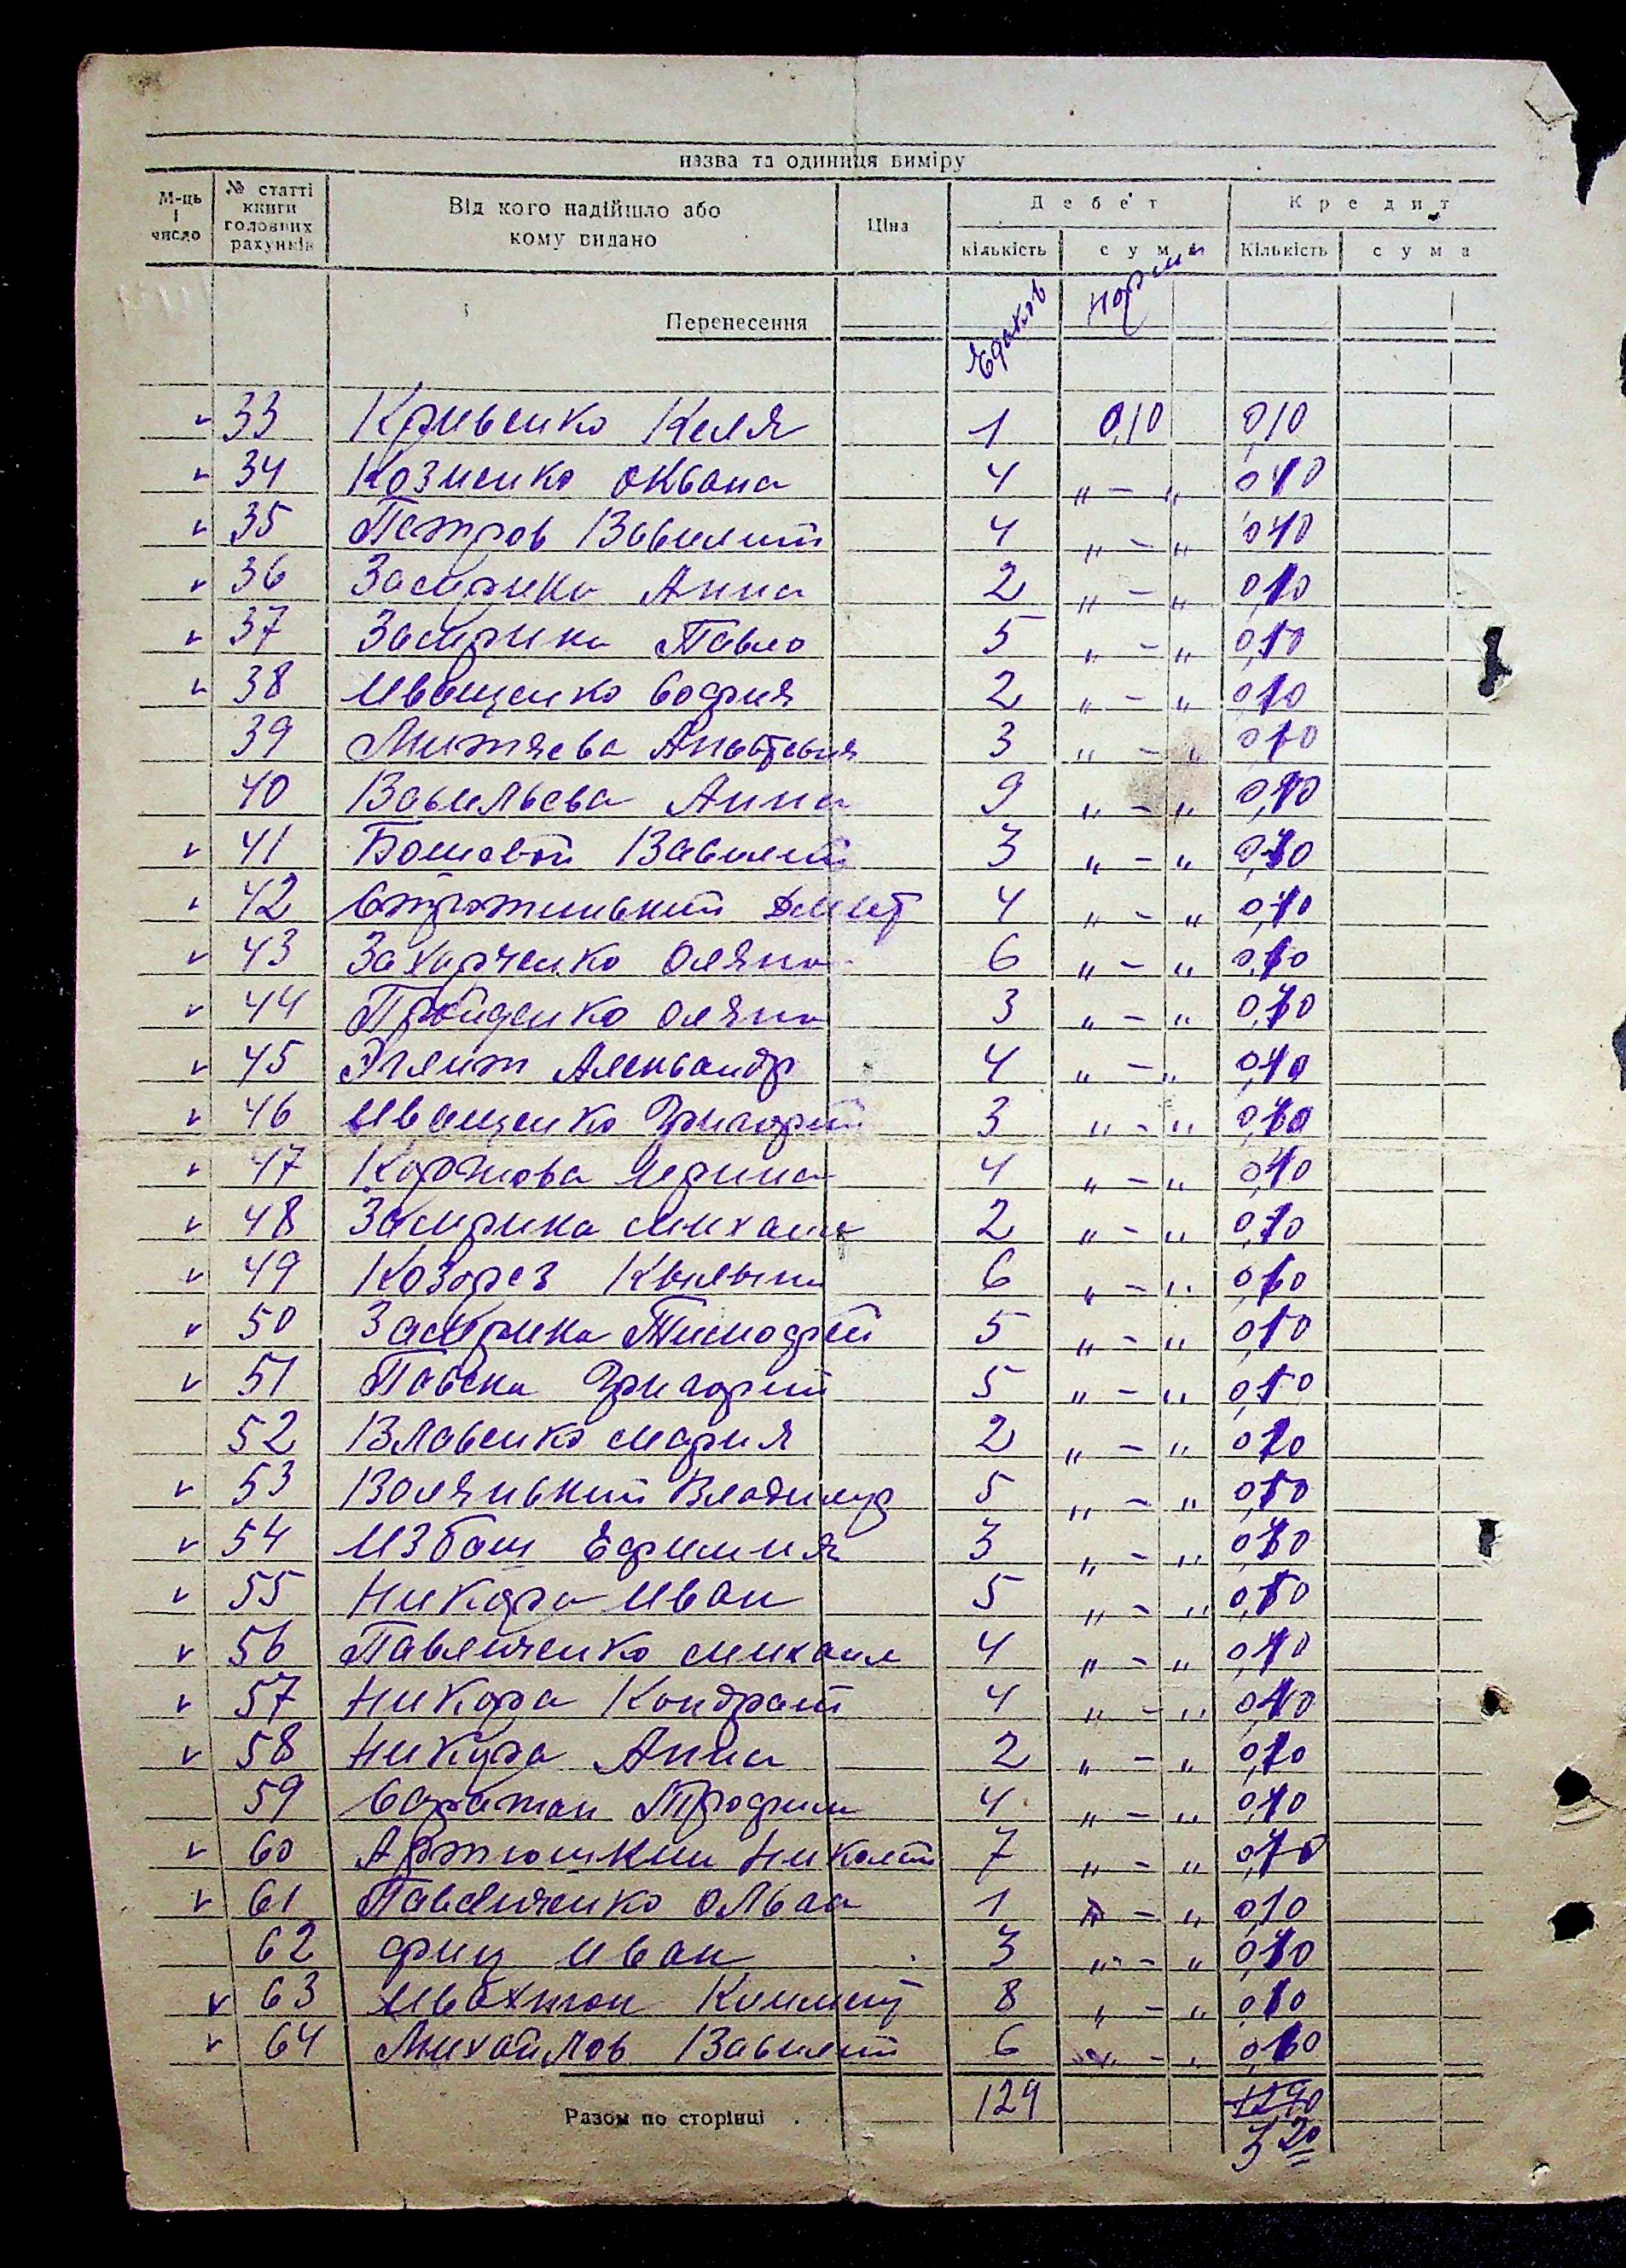 назва та одиниця виміру
М-ць і число № статті книги головних рахунків Від кого надійшло або кому видано Ціна Дебет Кредит
кількість сума Кількість сума
Перенесення Едаков норма
v 33 Кривенко Келя 1 0,10 0,10
v 34 Козиенко 4 „ – „ 0,10
v 35 Петров Василий 4 „ – „ 0,10
v 36 Замрика Анна 2 „ – „ 0,10
v 37 Замрика Павло 5 „ – „ 0,10
v 38 Иващенко София 2 „ – „ 0,10
39 Митяева 3 „ – „ 0,10
40 Васильева Анна 9 „ – „ 0,10
v 41 Василий 3 „ – „ 0,10
v 42 4 „ – „ 0,10
v 43 Захарченко Оляна 6 „ – „ 0,10
v 44 Пройденко Оляна 3 „ – „ 0,10
v 45 Александр 4 „ – „ 0,10
v 46 Иващенко Григорий 3 „ – „ 0,10
v 47 Ирина 4 „ – „ 0,10
v 48 Замрика Михаил 2 „ – „ 0,10
v 49 Козорез 6 „ – „ 0,10
v 50 Замрика Тимофей 5 „ – „ 0,10
v 51 Григорий 5 „ – „ 0,10
52 Власенко Мария 2 „ – „ 0,10
v 53 Волянький Владимир 5 „ – „ 0,10
v 54 Избаш Ефимия 3 „ – „ 0,10
v 55 Никора Иван 5 „ – „ 0,10
v 56 Павличенко Михаил 4 „ – „ 0,10
v 57 Никора Кондрат 4 „ – „ 0,10
v 58 Никура Анна 2 „ – „ 0,10
59 Саратан Трофим 4 „ – „ 0,10
v 60 Артюшкин Николай 7 „ – „ 0,10
v 61 Павличенко Ольга 1 „ – „ 0,10
62 Фриц Иван 3 „ – „ 0,10
v 63 8 „ – „ 0,10
v 64 Михайлов Василий 6 „ – „ 0,10
Разом по сторінці 129 1290
3 20